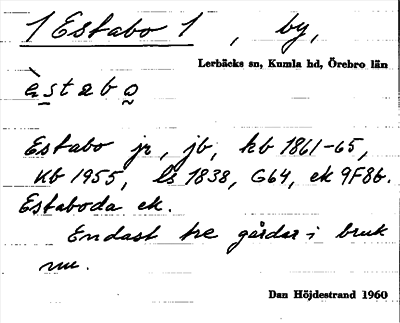 1 Estabo 1, by,
Lerbäcks sn, Kumla hd, Örebro län
èstabo
Estabo jr, jb, hb 1861-65,
Kb 1955, ls 1838, G64, ek 9F8b.
Estaboda ek.
Endast tre gårdar i bruk
nu.
Dan Höjdestrand 1960